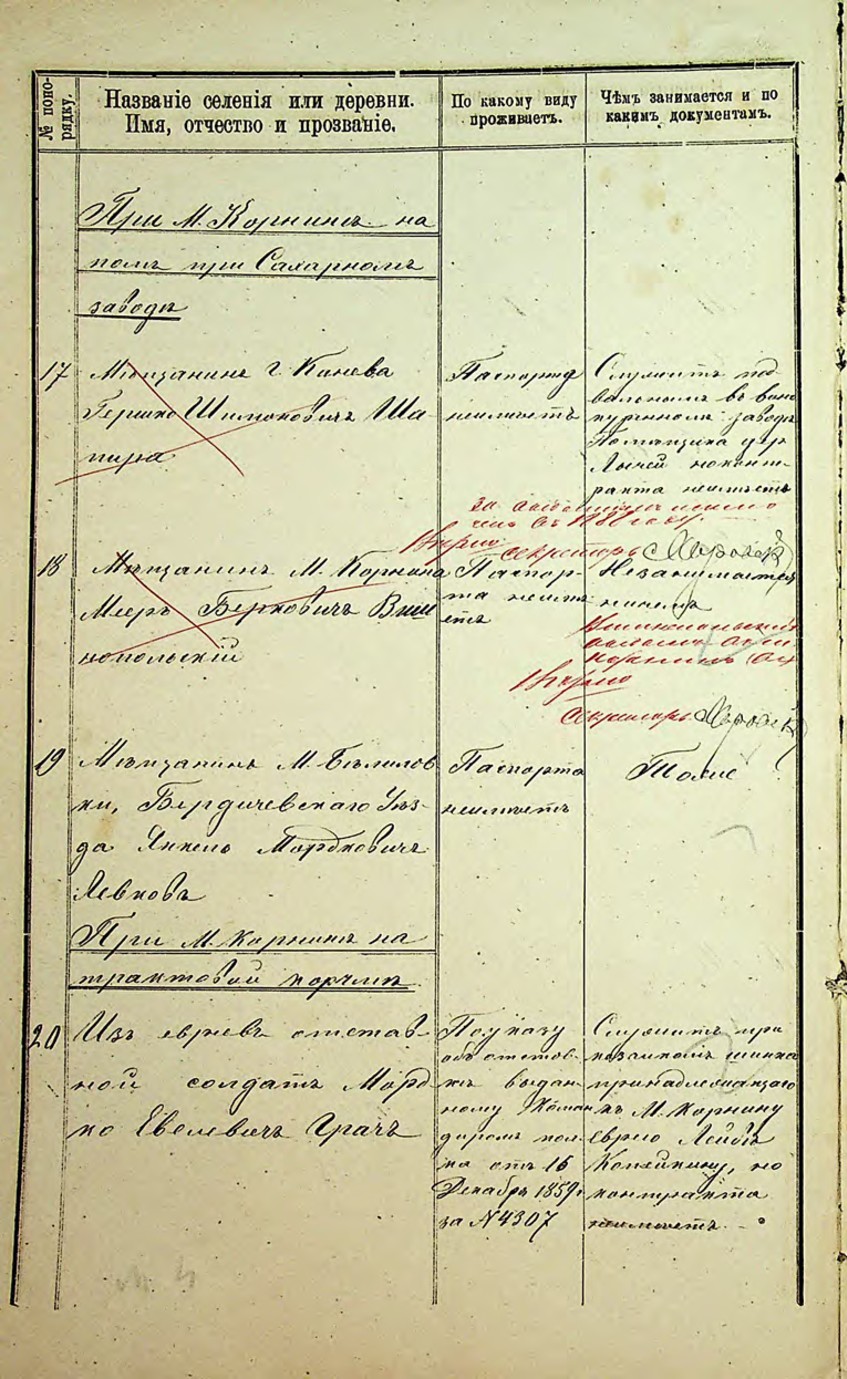 № поно-
рядку.
Названіе селенія или деревни.
Имя, отчество и прозваніе.
По какому виду
проживаетъ.
Чѣмъ занимается и по
какимъ документамъ.
При М. Корнинѣ на
при Сахарномъ
заводѣ
17
Мѣщанинъ г. Канева
Гершко Шимоновичъ Ша-
пира
Паспорта
неимѣетъ
Служитъ под
валономъ въ вино
куренномъ заводѣ
Помѣщика
но конт-
ракта неимѣетъ
за
въ 188 году.
Вѣрно:
Секретарь
18
Мѣщанинъ М. Корнина
Мееръ Берковичъ Виш
нопольскій
Паспор-
та неимѣ
етъ
Незанимается
ничемъ
Вѣрно
Секретарь
19
Мѣщанинъ М. Бѣлилов
ки, Бердичевскаго Уѣз-
да Янкель Мордковичъ
Левковъ
Паспорта
неимѣетъ
Тоже
При М. Корнинѣ на
трактовой корчмѣ
20
Изъ евреевъ отстав-
ной солдатъ Морд-
ко Евелевичъ Грачъ
По указу
объ отстав-
кѣ выдан-
ному Коман
диромъ пол-
ка отъ 16
Декабря 1859 г
за № 4307
Служитъ при
шинка
принадлежащаго
къ М. Корнину
еврею Лейбѣ
Копейкину, но
контракта
неимѣетъ. -